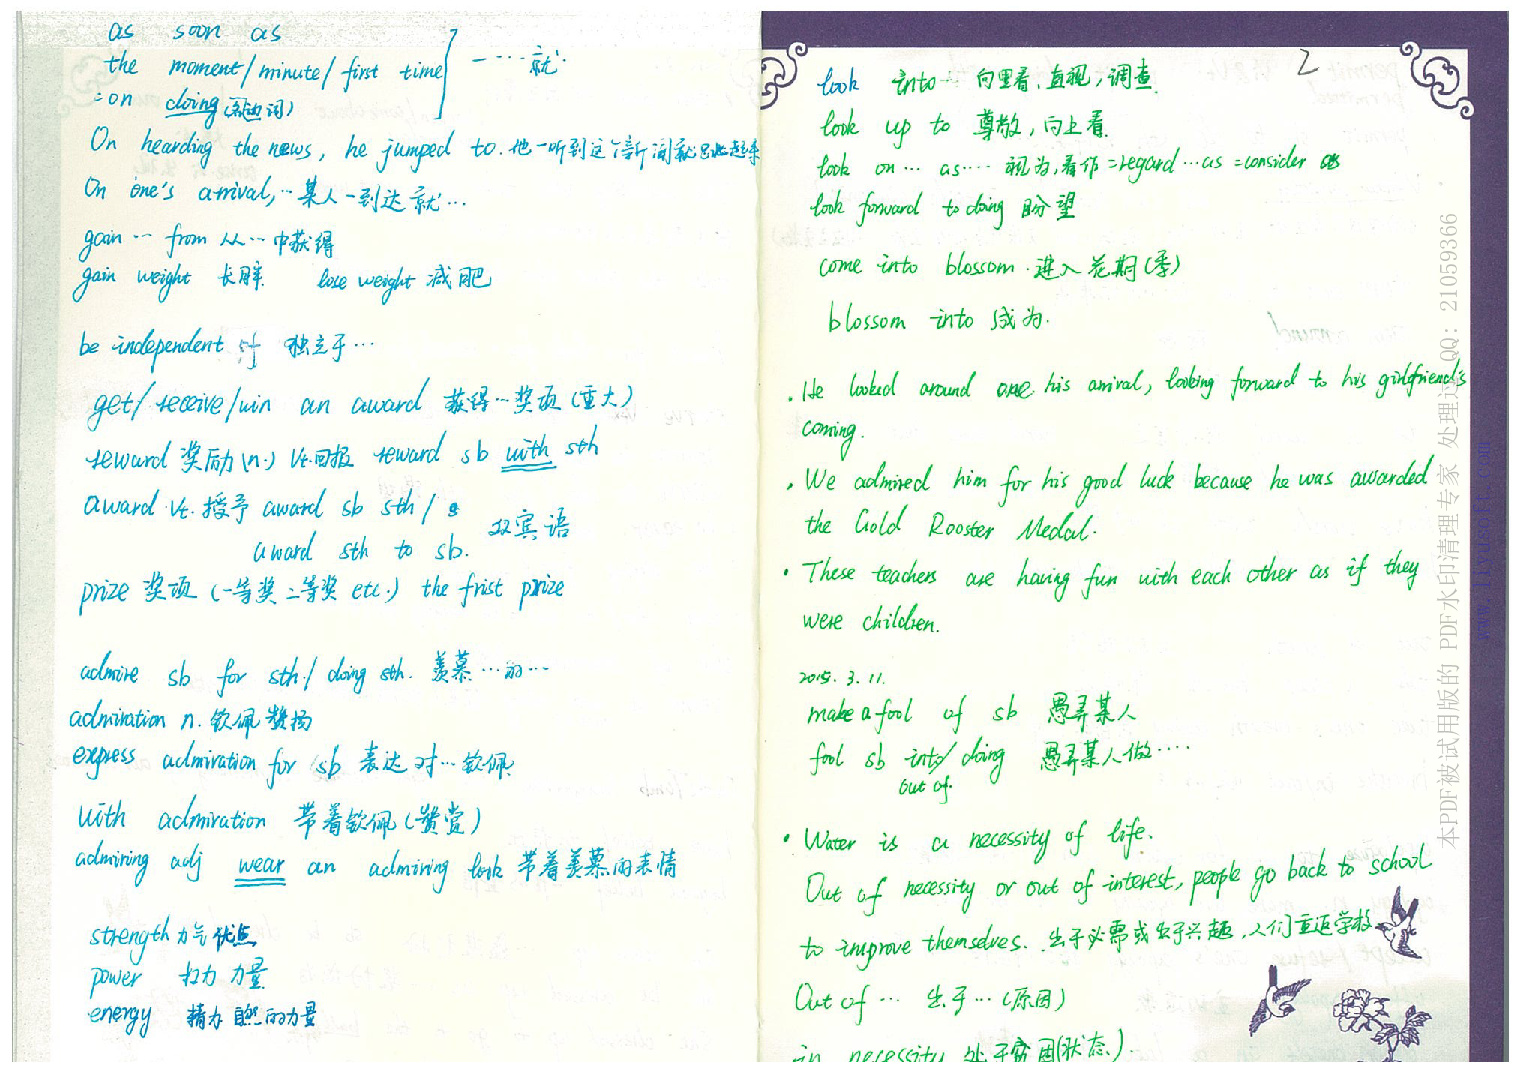 as soon as
the moment/minute/first time 一……就.
=on doing (動词)
On hearding the news, he jumped to. 他一听到这个新闻就跳起来
On one's arrival, … 某人一到达就…
gain … from 从…中获得
gain weight 长胖. lose weight 减肥
be independent of 独立于…
get/receive/win an award 获得…奖项 (重大)
reward 奖励 (n.) Vt.回报 reward sb with sth
award vt. 授予 award sb sth/
award sth to sb. 双宾语
prize 奖项 (一等奖 二等奖 etc.) the frist prize
admire sb for sth./ doing sth. 羡慕…的…
admiration n. 钦佩 赞扬
express admiration for sb 表达对…钦佩
With admiration 带着钦佩 (赞赏)
admiring adj wear an admiring look 带着羡慕的表情
strength 力气 优点
power 权力 力量
energy 精力 自然的力量
2
look into … 向里看, 直视, 调查.
look up to 尊敬, 向上看.
look on … as … 视为, 看作 = regard … as = consider as
look forward to doing 盼望
come into blossom . 进入花期 (季)
blossom into 成为.
. He looked around one his arrival, looking forward to his girlfriend's
coming.
. We admired him for his good luck because he was awarded
the Gold Rooster Medal.
. These teachers are having fun with each other as if they
were children.
2015. 3. 11.
make a fool of sb 愚弄某人
fool sb into/ doing 愚弄某人做….
out of.
. Water is a necessity of life.
Out of necessity or out of interest, people go back to school
to improve themselves. 出于必需或出于兴趣, 人们重返学校
Out of … 出于… (原因)
in necessity 处于穷困(状态).
本PDF被试用版的 PDF水印清理专家 处理过 QQ: 21059366